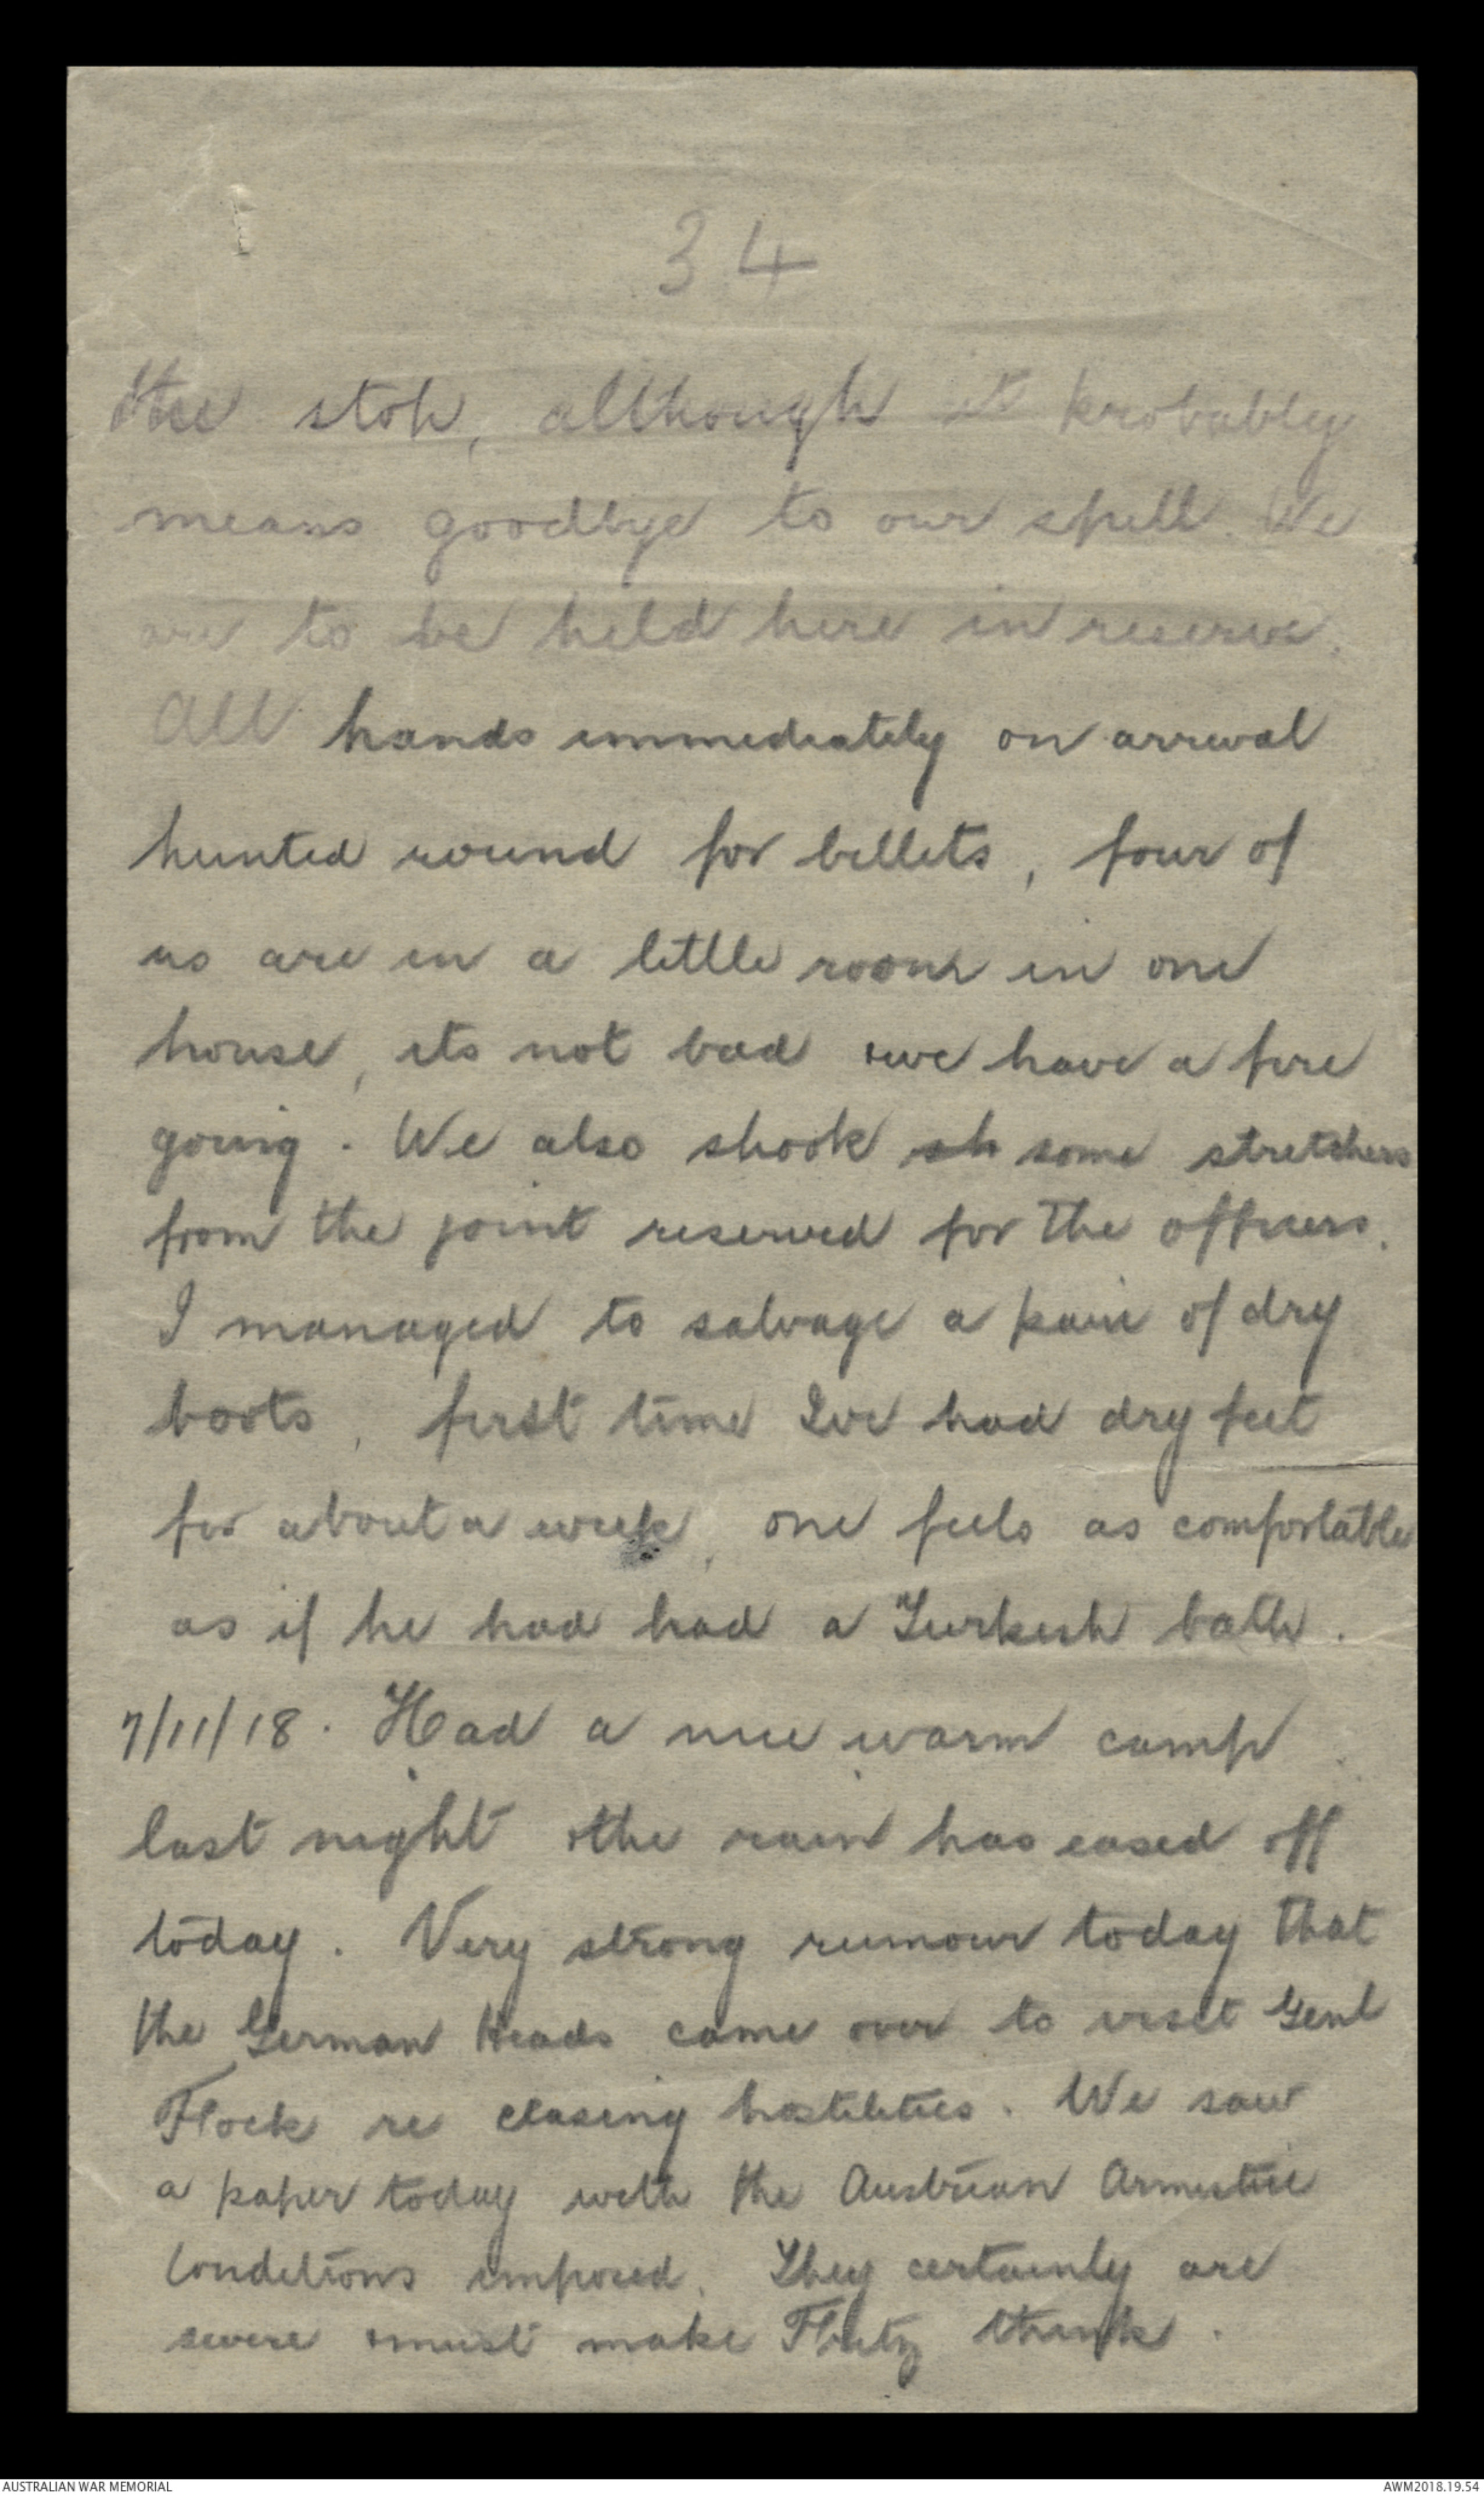 34
the stop, although it probably
means goodbye to our spell. We
are to be held here in reserve.
All hands immediately on arrival
hunted round for billets, four of
us are in a little room in one
house, its not bad & we have a fire
going. We also shook sh some stretchers
from the joint reserved for the officers.
I managed to salvage a pair of dry
boots, first time Ive had dry feet
for about a week, one feels as comfortable
as if he had had a Turkish bath.
7/11/18. Had a nice warm camp
last night & the rain has eased off
today. Very strong rumour today that
the German Heads came over to visit Genl
Flock re closing hostilities. We saw
a paper today with the Austrian Armistice
Conditions imposed. They certainly are
severe & must make Fritz think.
AUSTRALIAN WAR MEMORIAL
AWM2018.19.54